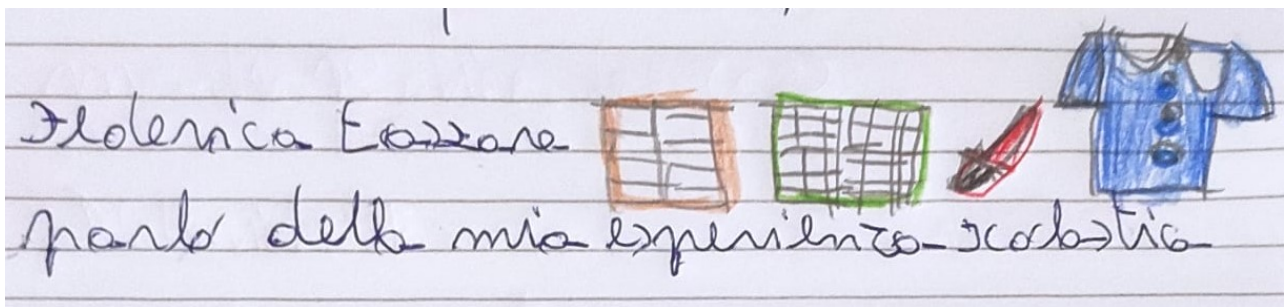 Federica
parlo della mia esperienza scolastica